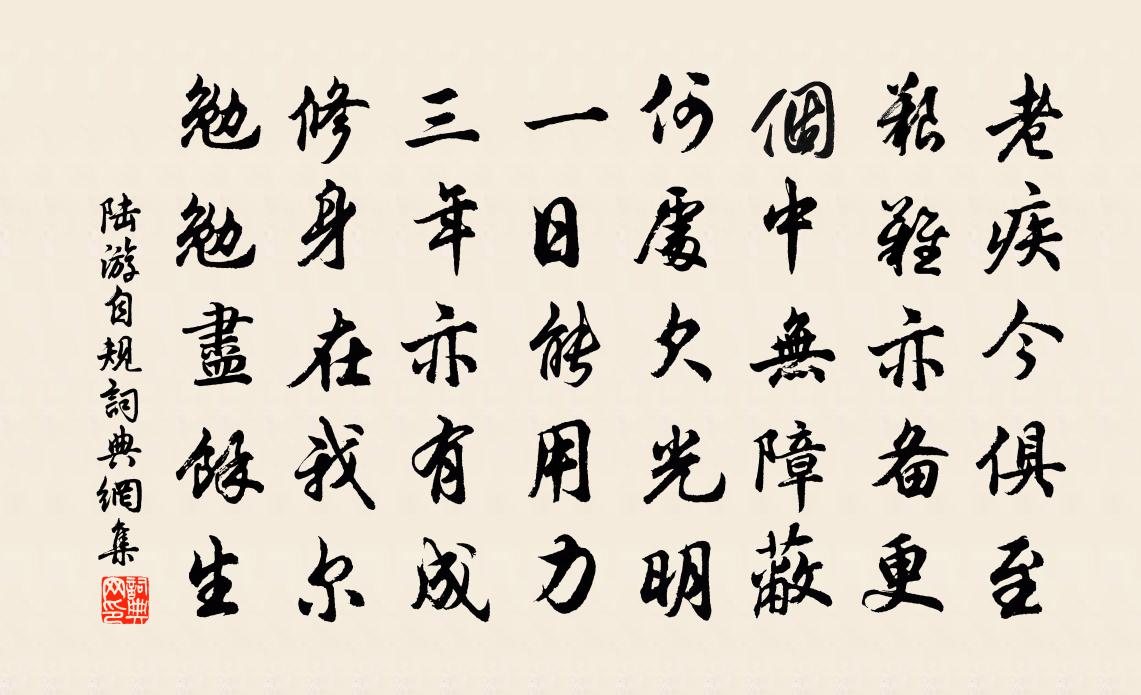 老疾今俱至
艱難亦备更
個中無障蔽
何處欠光明
一日能用力
三年亦有成
修身在我尔
勉勉盡餘生
陆游自规詞典網集
詞典网印